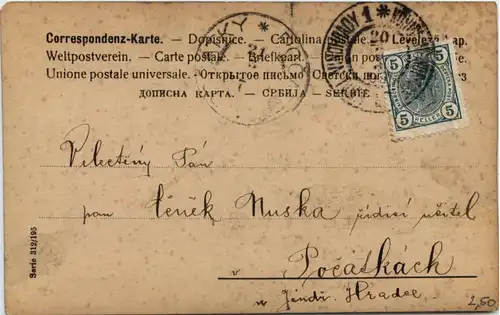 Correspondenz-Karte. — Dopisnice. — Cartolina — Levelező-Lap.
Weltpostverein. — Carte postale. — Briefkaart. —
Unione postale universale. — Открытое письмо
ДОПИСНА КАРТА. — СРБИЈА — SERBIE
1
20
5 5
HELLER
5 5
Velectěný Pán
pan Čeněk Nuska řídící učitel
v Počátkách
u Jindř. Hradce
Serie 312/195
2,50